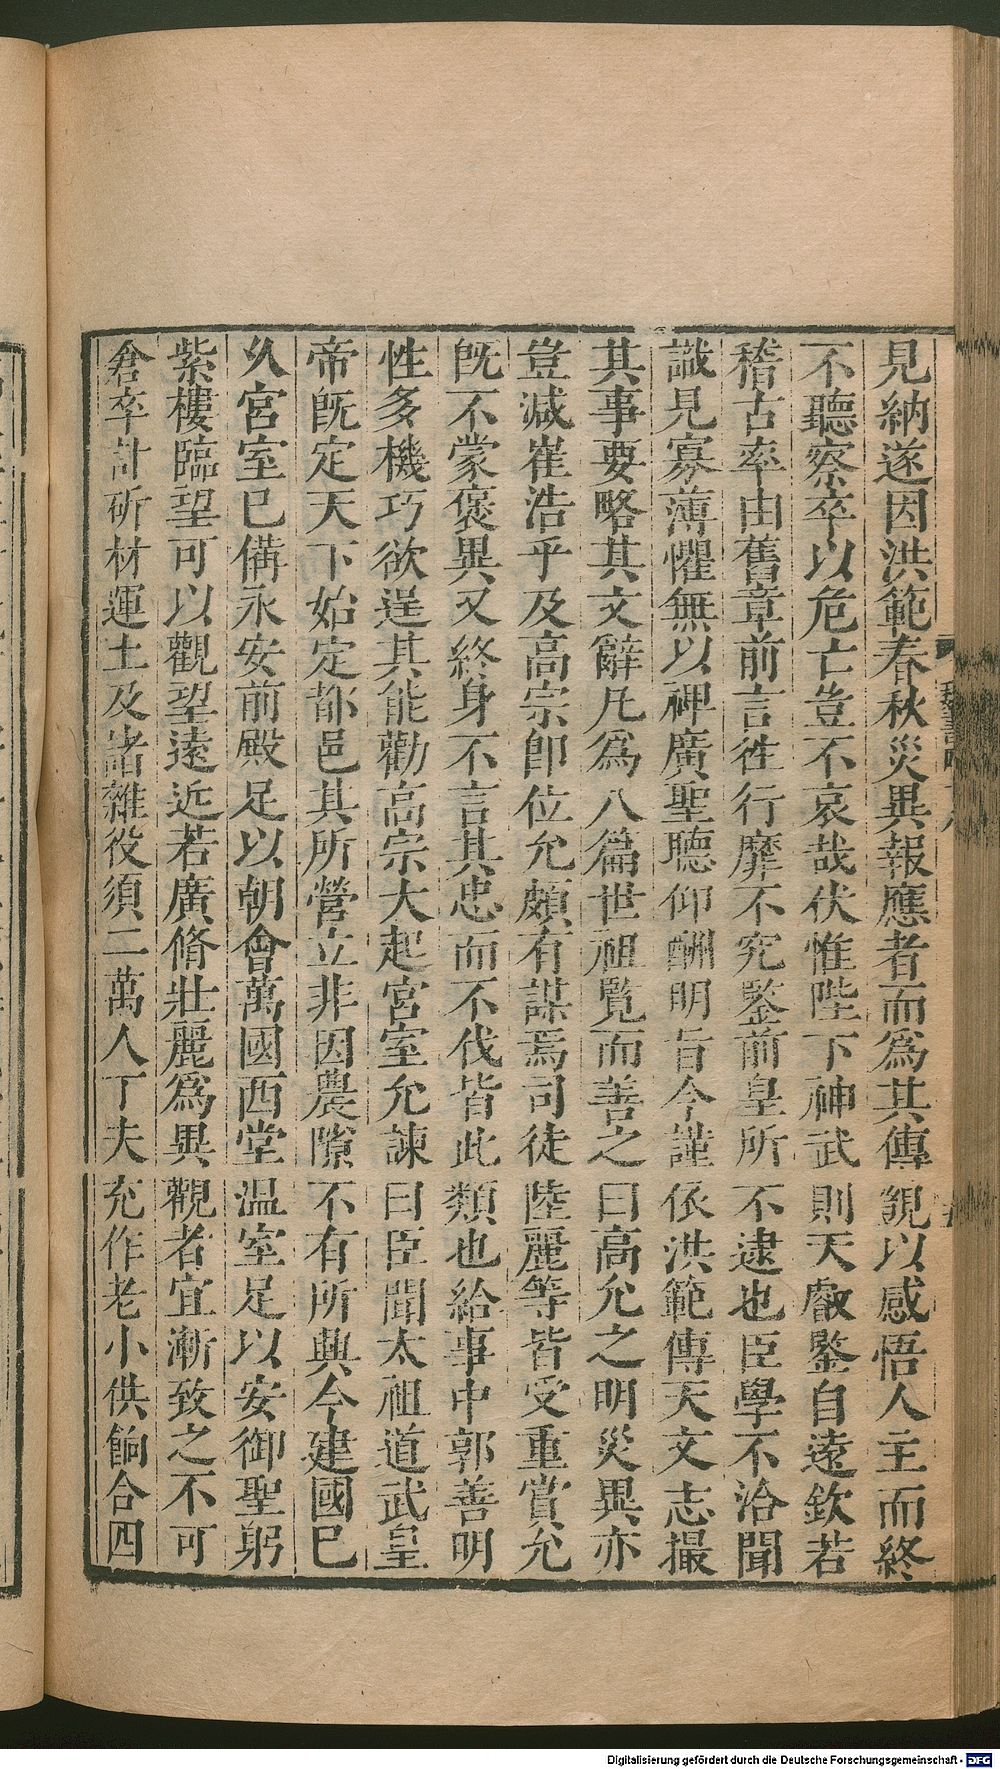 見納遂因洪範春秋災異報應者而爲其傳覬以感悟人主而終
不聽察卒以危亡豈不哀哉伏惟陛下神武則天叡鑒自遠欽若
稽古率由舊章前言徃行靡不究鑒前皇所不逮也臣學不洽聞
識見寡薄懼無以裨廣聖聽仰酬明旨今謹依洪範傳天文志撮
其事要略其文辭凡爲八篇世祖覽而善之曰高允之明災異亦
豈減崔浩乎及高宗卽位允頗有謀焉司徒陸麗等皆受重賞允
旣不蒙褒異又終身不言其忠而不伐皆此類也給事中郭善明
性多機巧欲逞其能勸高宗大起宮室允諫曰臣聞太祖道武皇
帝旣定天下始定都邑其所營立非因農隙不有所興今建國巳
久宮室已備永安前殿足以朝會萬國西堂温室足以安御聖躬
紫樓臨望可以觀望遠近若廣脩壯麗爲異觀者宜漸致之不可
倉卒計斫材運土及諸雜役須二萬人丁夫充作老小供餉合四
Digitalisierung gefördert durch die Deutsche Forschungsgemeinschaft - DFG